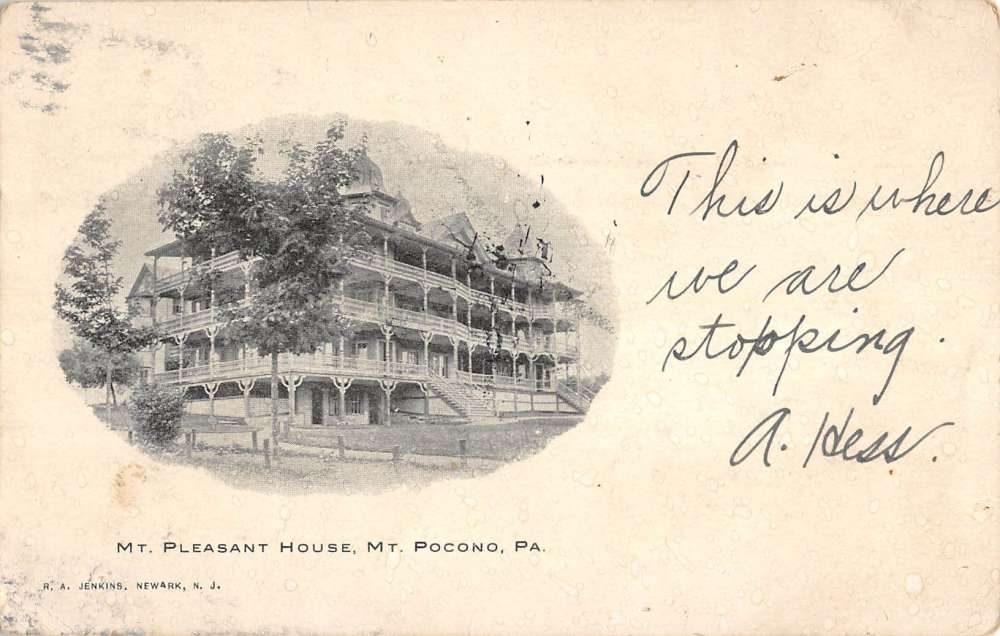 This is where
we are
stopping.
A. Hess.
MT. PLEASANT HOUSE, MT. POCONO, PA.
R. A. JENKINS, NEWARK, N. J.